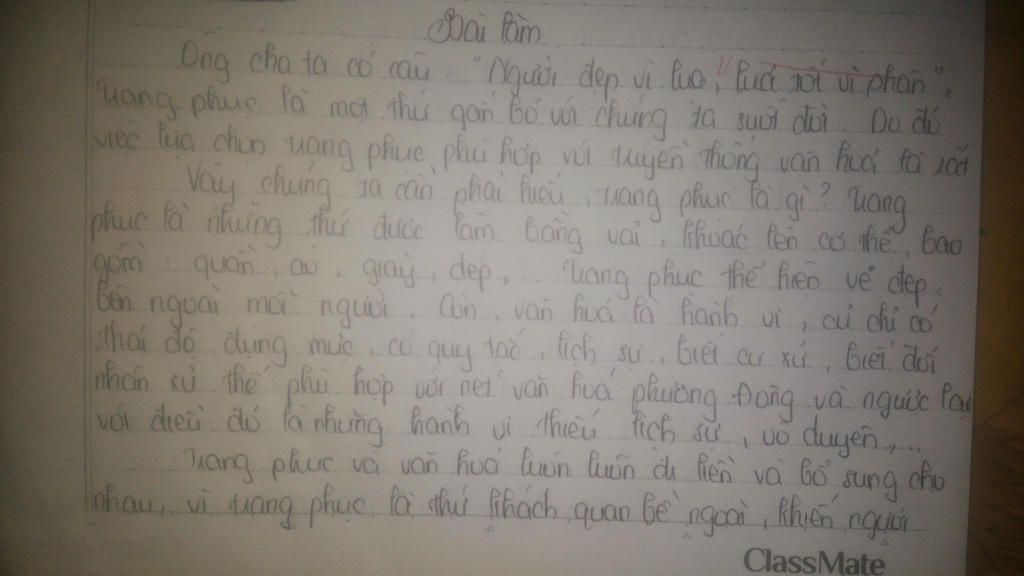 Bài làm
Ông cha ta có câu: "Người đẹp vì lụa, "lúa tốt vì phân",
trang phục là một thứ gắn bó với chúng ta suốt đời. Do đó
việc lựa chọn trang phục phù hợp với truyền thống văn hoá là rất
Vậy chúng ta cần phải hiểu, trang phục là gì? Trang
phục là những thứ được làm bằng vải, khoác lên cơ thể, bao
gồm: quần, áo, giày, dép,... Trang phục thể hiện vẻ đẹp
bên ngoài mỗi người. Còn, văn hoá là hành vi, cử chỉ có
thái độ đúng mực, có quy tắc, lịch sự, biết cư xử, biết đối
nhân xử thế phù hợp với nét văn hoá phương Đông và ngược lại
với điều đó là những hành vi thiếu lịch sự, vô duyên,...
Trang phục và văn hoá luôn luôn đi liền và bổ sung cho
nhau, vì trang phục là thứ khách quan bề ngoài, khiến người
ClassMate